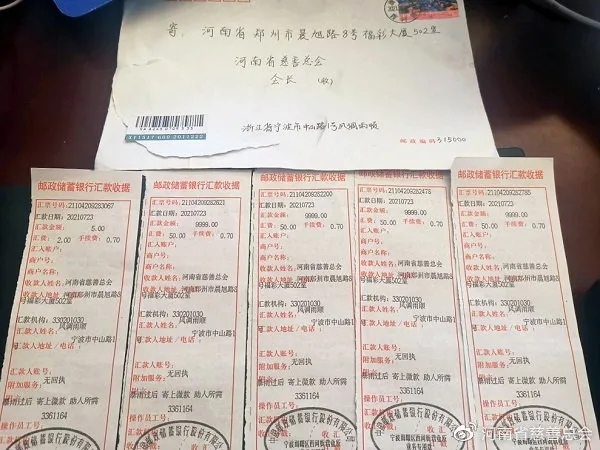 寄：河南省郑州市晨旭路8号福彩大厦502室
河南省慈善总会
会长 (收)
浙江省宁波市中山路1号风调雨顺
邮政编码 315000
邮政储蓄银行汇款收据
汇票号码:21104209283067
汇款日期: 20210723
汇款金额: 5.00
汇费: 2.00 手续费: 0.70
汇入账户:
商户号:
商户名称:
收款人姓名:河南省慈善总会
收款人地址:河南郑州市晨旭路8
号福彩大厦502室
汇款机构: 330201030
汇款人姓名: 风调雨顺
汇款人地址/电话: 宁波市中山路1
号
汇款人账号:
附加服务: 无回执
暴雨过后 寄上微款 助人所需
3361164
操作员工号:
邮政储蓄银行汇款收据
汇票号码:21104209282621
汇款日期: 20210723
汇款金额: 9999.00
汇费: 50.00 手续费: 0.70
汇入账户:
商户号:
商户名称:
收款人姓名:河南省慈善总会
收款人地址:河南郑州市晨旭路8
号福彩大厦502室
汇款机构: 330201030
汇款人姓名: 风调雨顺
汇款人地址/电话: 宁波市中山路1
号
汇款人账号:
附加服务: 无回执
暴雨过后 寄上微款 助人所需
3361164
操作员工号:
邮政储蓄银行汇款收据
汇票号码:21104209282200
汇款日期: 20210723
汇款金额: 9999.00
汇费: 50.00 手续费: 0.70
汇入账户:
商户号:
商户名称:
收款人姓名:河南省慈善总会
收款人地址:河南郑州市晨旭路8
号福彩大厦502室
汇款机构: 330201030
汇款人姓名: 风调雨顺
汇款人地址/电话: 宁波市中山路1
号
汇款人账号:
附加服务: 无回执
暴雨过后 寄上微款 助人所需
3361164
操作员工号:
邮政储蓄银行汇款收据
汇票号码:21104209282478
汇款日期: 20210723
汇款金额: 9999.00
汇费: 50.00 手续费: 0.70
汇入账户:
商户号:
商户名称:
收款人姓名:河南省慈善总会
收款人地址:河南郑州市晨旭路8
号福彩大厦502室
汇款机构: 330201030
汇款人姓名: 风调雨顺
汇款人地址/电话: 宁波市中山路1
号
汇款人账号:
附加服务: 无回执
暴雨过后 寄上微款 助人所需
3361164
操作员工号:
邮政储蓄银行汇款收据
汇票号码:21104209282785
汇款日期: 20210723
汇款金额: 9999.00
汇费: 50.00 手续费: 0.70
汇入账户:
商户号:
商户名称:
收款人姓名:河南省慈善总会
收款人地址:河南郑州市晨旭路8
号福彩大厦502室
汇款机构: 330201030
汇款人姓名: 风调雨顺
汇款人地址/电话: 宁波市中山路1
号
汇款人账号:
附加服务: 无回执
暴雨过后 寄上微款 助人所需
3361164
操作员工号:
@河南省慈善总会